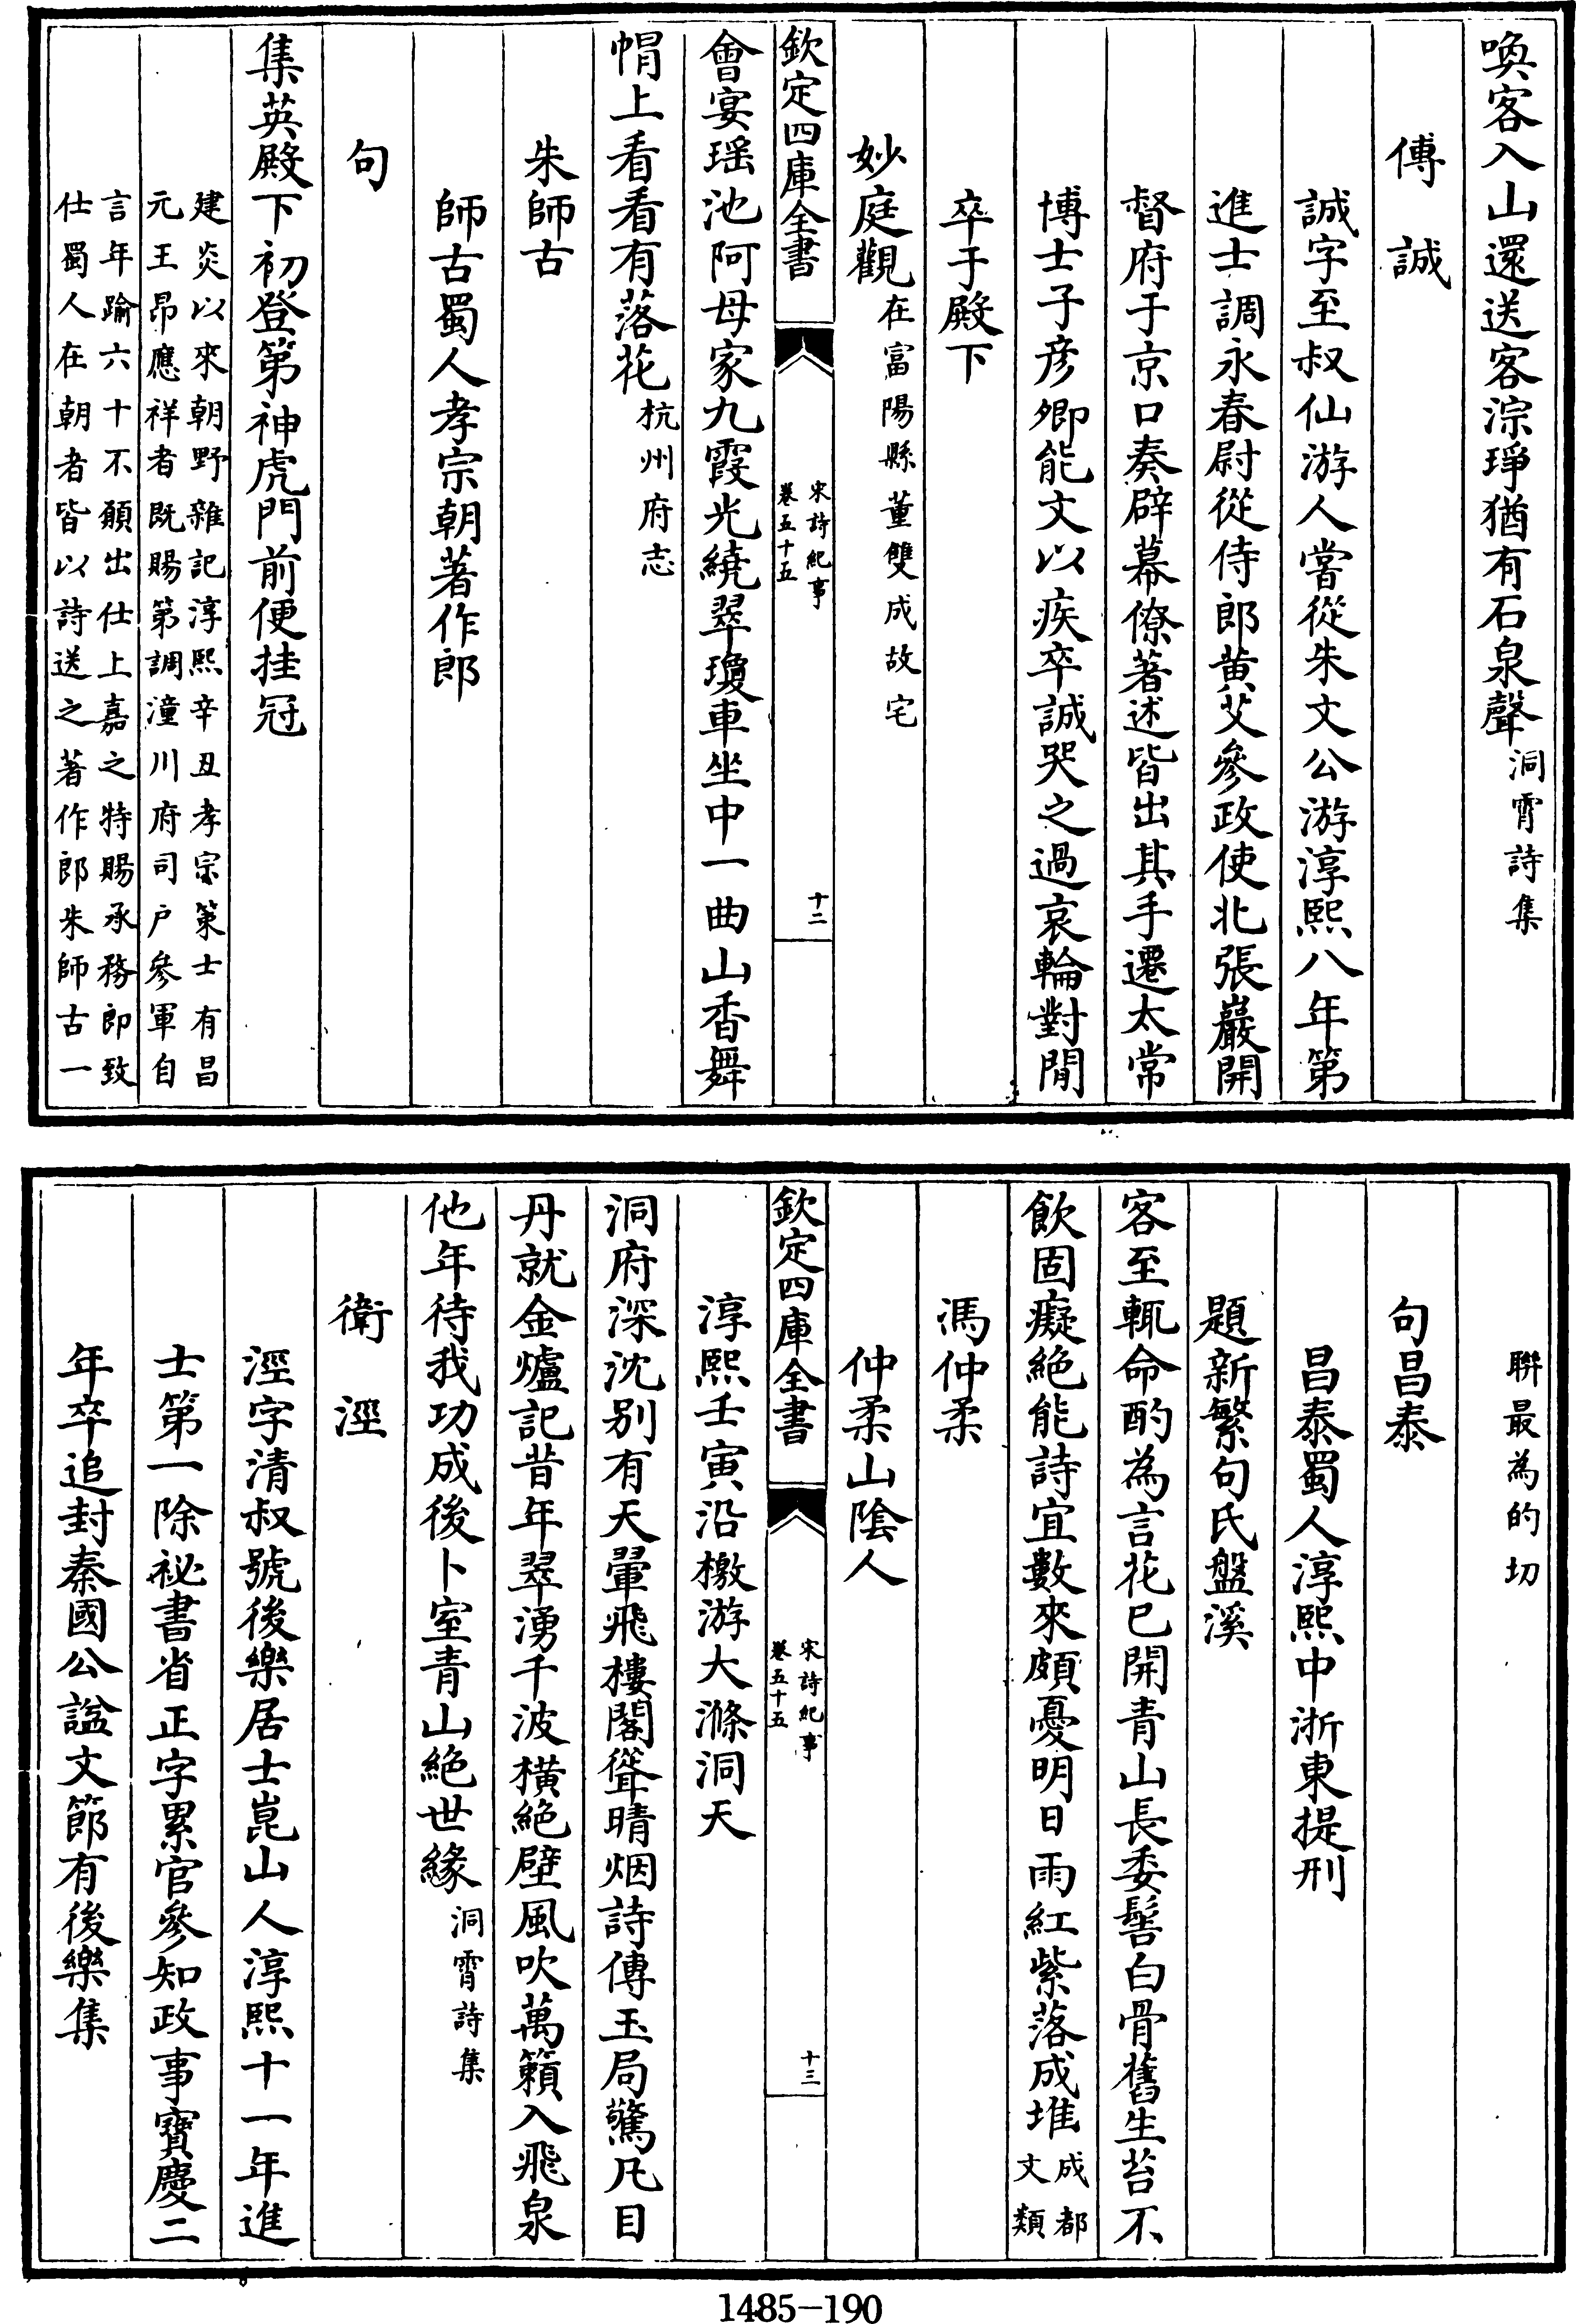 喚客入山還送客淙琤猶有石泉聲洞霄詩集
傅誠
誠字至叔仙游人嘗從朱文公游淳熙八年第
進士調永春尉從侍郎黄艾參政使北張巖開
督府于京口奏辟幕僚著述皆出其手遷太常
博士子彦卿能文以疾卒誠哭之過哀輪對閒
卒于殿下
妙庭觀在富陽縣董雙成故宅
欽定四庫全書
宋詩紀事
卷五十五
十二
會宴瑶池阿母家九霞光繞翠瓊車坐中一曲山香舞
帽上看看有落花杭州府志
朱師古
師古蜀人孝宗朝著作郎
句
集英殿下初登第神虎門前便挂冠
建炎以來朝野雜記淳熙辛丑孝宗策士有昌
元王昂應祥者既賜第調潼川府司户參軍自
言年踰六十不願出仕上嘉之特賜承務郎致
仕蜀人在朝者皆以詩送之著作郎朱師古一
聨最為的切
句昌泰
昌泰蜀人淳熙中浙東提刑
題新繁句氏盤溪
客至輒命酌為言花已開青山長委髻白骨舊生苔不
飲固癡絶能詩宜數來頗憂明日雨紅紫落成堆成都
文類
馮仲柔
仲柔山陰人
欽定四庫全書
宋詩紀事
卷五十五
十三
淳熙壬寅沿檄游大滌洞天
洞府深沈别有天翬飛樓閣聳晴烟詩傳玉局驚凡目
丹就金爐記昔年翠湧千波横絶壁風吹萬籟入飛泉
他年待我功成後卜室青山絶世緣洞霄詩集
衛涇
涇字清叔號後樂居士崑山人淳熙十一年進
士第一除祕書省正字累官參知政事寶慶二
年卒追封秦國公諡文節有後樂集
1485-190